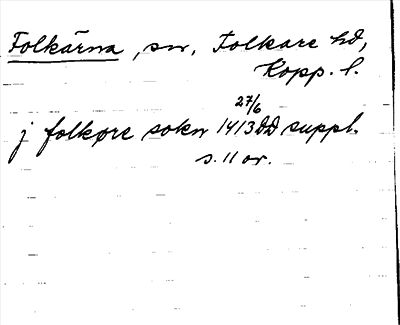 Folkärna, sn, Folkare hd,
Kopp. l.
27/6
j folkøre sokn 1413 DD suppl.
s. 11 or.